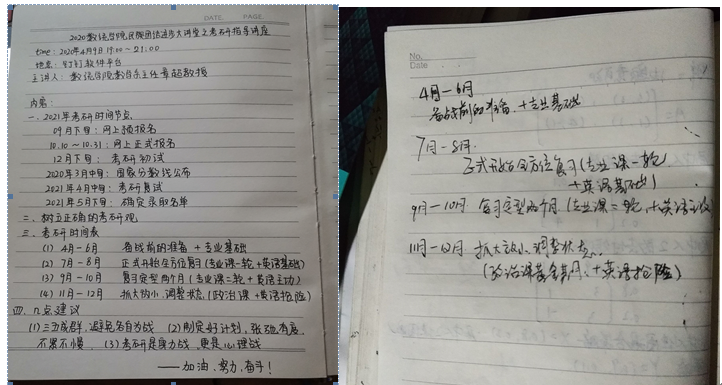 DATE. PAGE.
2020数信学院民族团结进步大讲堂之考研指导讲座
time: 2020年4月9日 19:00~21:00
地点: 钉钉软件平台
主讲人: 数信学院数学系主任 教授
内容:
一. 2021年考研时间节点
09月下旬: 网上预报名
10.10~10.31: 网上正式报名
12月下旬: 考研初试
2020年3月中旬: 国家分数线公布
2021年4月中旬: 考研复试
2021年5月下旬: 确定录取名单
二. 树立正确的考研观
三. 考研时间表
(1) 4月-6月 备战前的准备 + 专业基础
(2) 7月-8月 正式开始全方位复习 (专业课一轮 + 英语基础)
(3) 9月-10月 复习定型两个月 (专业课二轮 + 英语主动)
(4) 11月-12月 抓大放小, 调整状态 (政治课 + 英语抢险)
四. 几点建议
(1) 三五成群, 避免各自为战 (2) 制定好计划, 张弛有度,
不累不慢 (3) 考研是实力战, 更是心理战
——加油, 努力, 奋斗!
No.
Date
4月-6月
备战前的准备, + 专业基础
7月-8月.
正式开始全方位复习 (专业课一轮
+ 英语基础)
9月-10月 复习定型两个月 (专业课二轮, + 英语主攻
11月-12月 抓大放小, 调整状态.
(政治课黄金期, + 英语抢险)